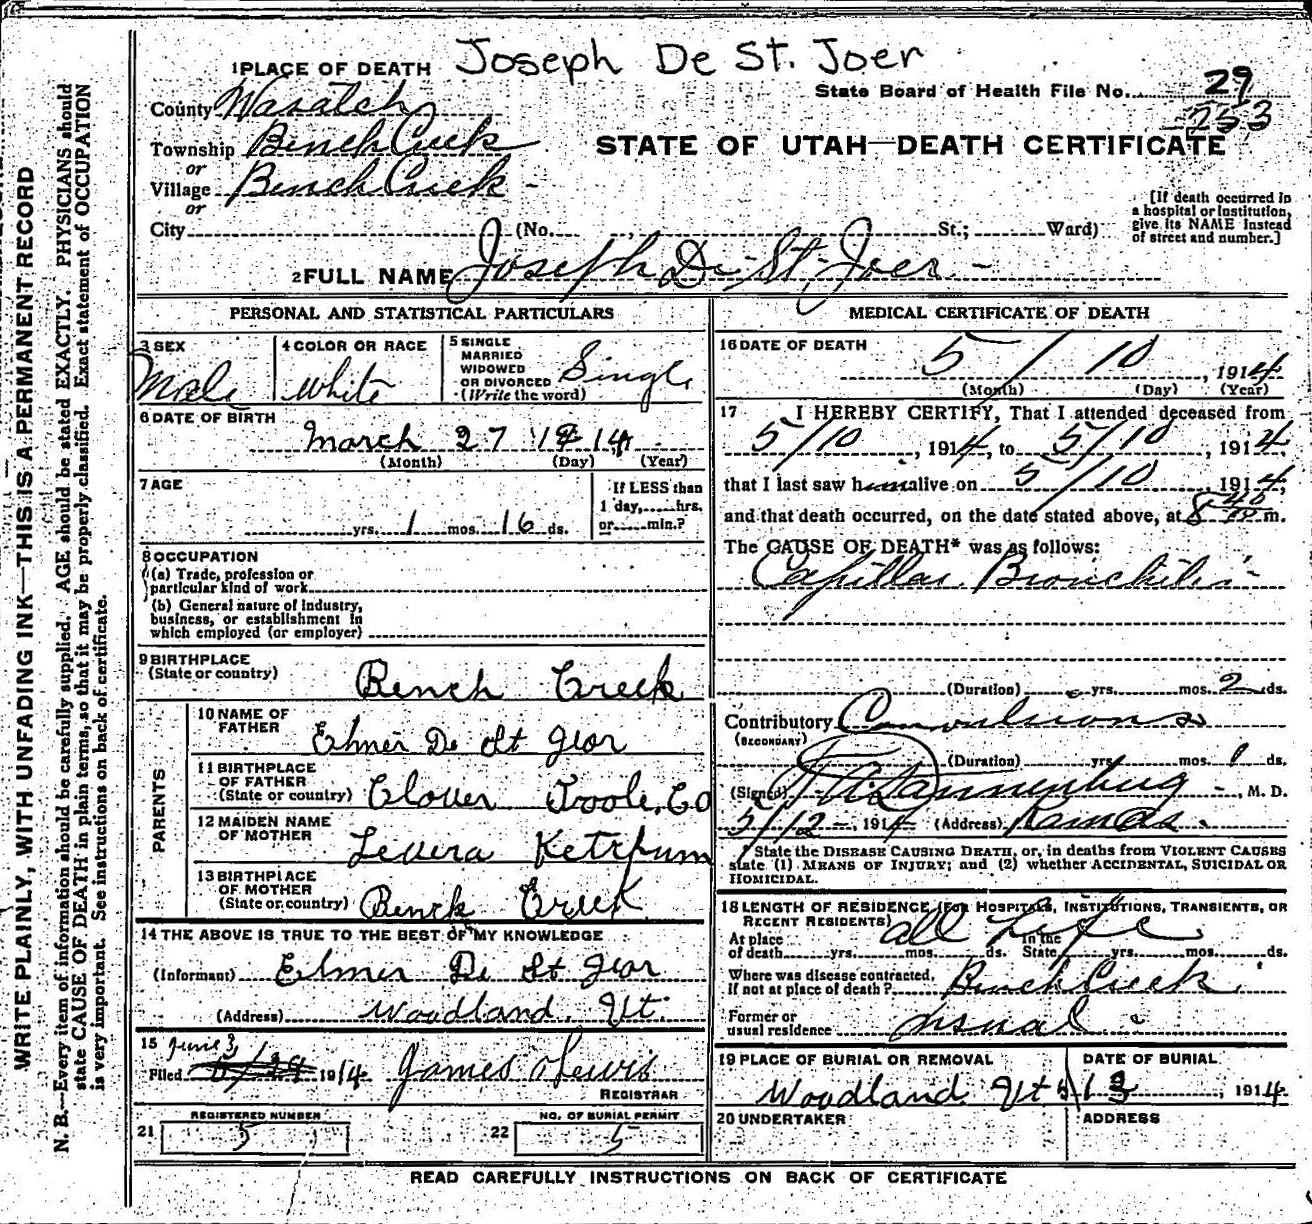 Joseph De St. Joer
1 PLACE OF DEATH
State Board of Health File No. 29
253
County Wasatch
STATE OF UTAH—DEATH CERTIFICATE
Township Bench Creek
or
Village Bench Creek
or
City (No. St.; Ward)
[If death occurred in
a hospital or institution,
give its NAME instead
of street and number.]
2 FULL NAME Joseph De St. Joer
PERSONAL AND STATISTICAL PARTICULARS
3 SEX
Male
4 COLOR OR RACE
White
5 SINGLE
MARRIED
WIDOWED
OR DIVORCED
(Write the word)
Single
6 DATE OF BIRTH
March 27 1914
(Month) (Day) (Year)
7 AGE
yrs. 1 mos. 16 ds.
If LESS than
1 day, hrs.
or min.?
8 OCCUPATION
(a) Trade, profession or
particular kind of work
(b) General nature of industry,
business, or establishment in
which employed (or employer)
9 BIRTHPLACE
(State or country)
Bench Creek
PARENTS
10 NAME OF
FATHER
Elmer De St Jeor
11 BIRTHPLACE
OF FATHER
(State or country)
Clover Toole, Co
12 MAIDEN NAME
OF MOTHER
Levera Ketchum
13 BIRTHPLACE
OF MOTHER
(State or country)
Bench Creek
14 THE ABOVE IS TRUE TO THE BEST OF MY KNOWLEDGE
(Informant) Elmer De St Jeor
(Address) Woodland Ut.
15
June 3,
Filed 1914 James Lewis
REGISTRAR
REGISTERED NUMBER
21 5
NO. OF BURIAL PERMIT
22 5
MEDICAL CERTIFICATE OF DEATH
16 DATE OF DEATH
5 / 10, 1914
(Month) (Day) (Year)
17 I HEREBY CERTIFY, That I attended deceased from
5/10, 1914, to 5/10, 1914,
that I last saw him alive on 5/10, 1914,
and that death occurred, on the date stated above, at 8 45 m.
The CAUSE OF DEATH* was as follows:
Capillar Bronchitis
(Duration) yrs. mos. 2 ds.
Contributory Convulsions
(SECONDARY)
(Duration) yrs. mos. 1 ds.
(Signed) Dannenburg, M. D.
5/12, 1914 (Address) Kamas
State the DISEASE CAUSING DEATH, or, in deaths from VIOLENT CAUSES
state (1) MEANS OF INJURY; and (2) whether ACCIDENTAL, SUICIDAL OR
HOMICIDAL.
18 LENGTH OF RESIDENCE (FOR HOSPITALS, INSTITUTIONS, TRANSIENTS, OR
RECENT RESIDENTS) all Life
At place In the
of death yrs. mos. ds. State yrs. mos. ds.
Where was disease contracted,
If not at place of death? Bench Creek
Former or
usual residence usual
19 PLACE OF BURIAL OR REMOVAL
Woodland Ut
DATE OF BURIAL
5/13, 1914
20 UNDERTAKER
ADDRESS
READ CAREFULLY INSTRUCTIONS ON BACK OF CERTIFICATE
WRITE PLAINLY, WITH UNFADING INK—THIS IS A PERMANENT RECORD
N. B.—Every item of information should be carefully supplied. AGE should be stated EXACTLY. PHYSICIANS should
state CAUSE OF DEATH in plain terms, so that it may be properly classified. Exact statement of OCCUPATION
is very important. See instructions on back of certificate.